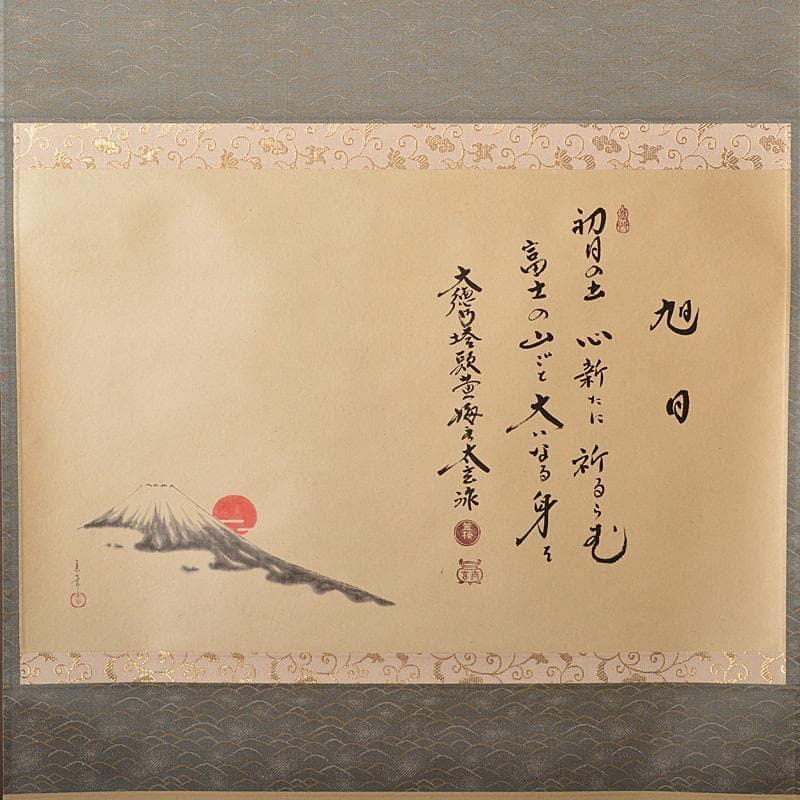 旭日
初日の出 心新たに 祈るらむ
富士の山ごと 大いなる身を
大徳 塔頭黄梅 太玄
黄梅